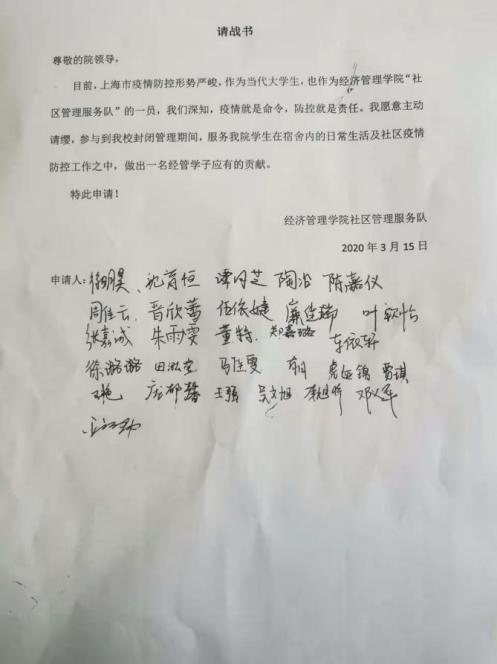 请战书
尊敬的院领导，
目前，上海市疫情防控形势严峻，作为当代大学生，也作为经济管理学院“社
区管理服务队”的一员，我们深知，疫情就是命令，防控就是责任。我愿意主动
请缨，参与到我校封闭管理期间，服务我院学生在宿舍内的日常生活及社区疫情
防控工作之中，做出一名经管学子应有的贡献。
特此申请！
经济管理学院社区管理服务队
2020 年 3 月 15 日
申请人：沈育恒 谭丹芝 陶冶 陈嘉仪
晋欣蕾 伍依婕
张嘉诚 朱雨雯 董特 郑嘉璐
徐潞潞 贾琪
王艳 王强 吴文旭